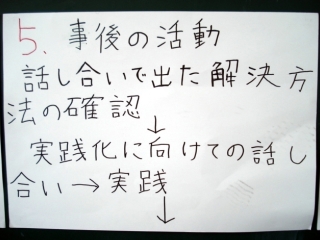 5. 事後の活動
話し合いで出た解決方
法の確認
↓
実践化に向けての話し
合い→実践
↓